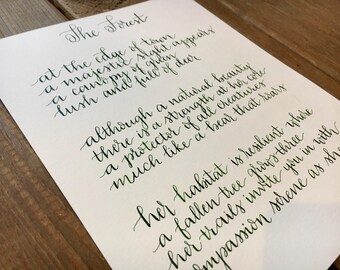 The Forest
at the edge of town
a majestic sight appears
a canopy of green
lush and full of deer
although a natural beauty
there is a strength at her core
a protector of all creatures
much like a bear that roars
her habitat is resilient where
a fallen tree grows three
her trails invite you in with
compassion serene as she